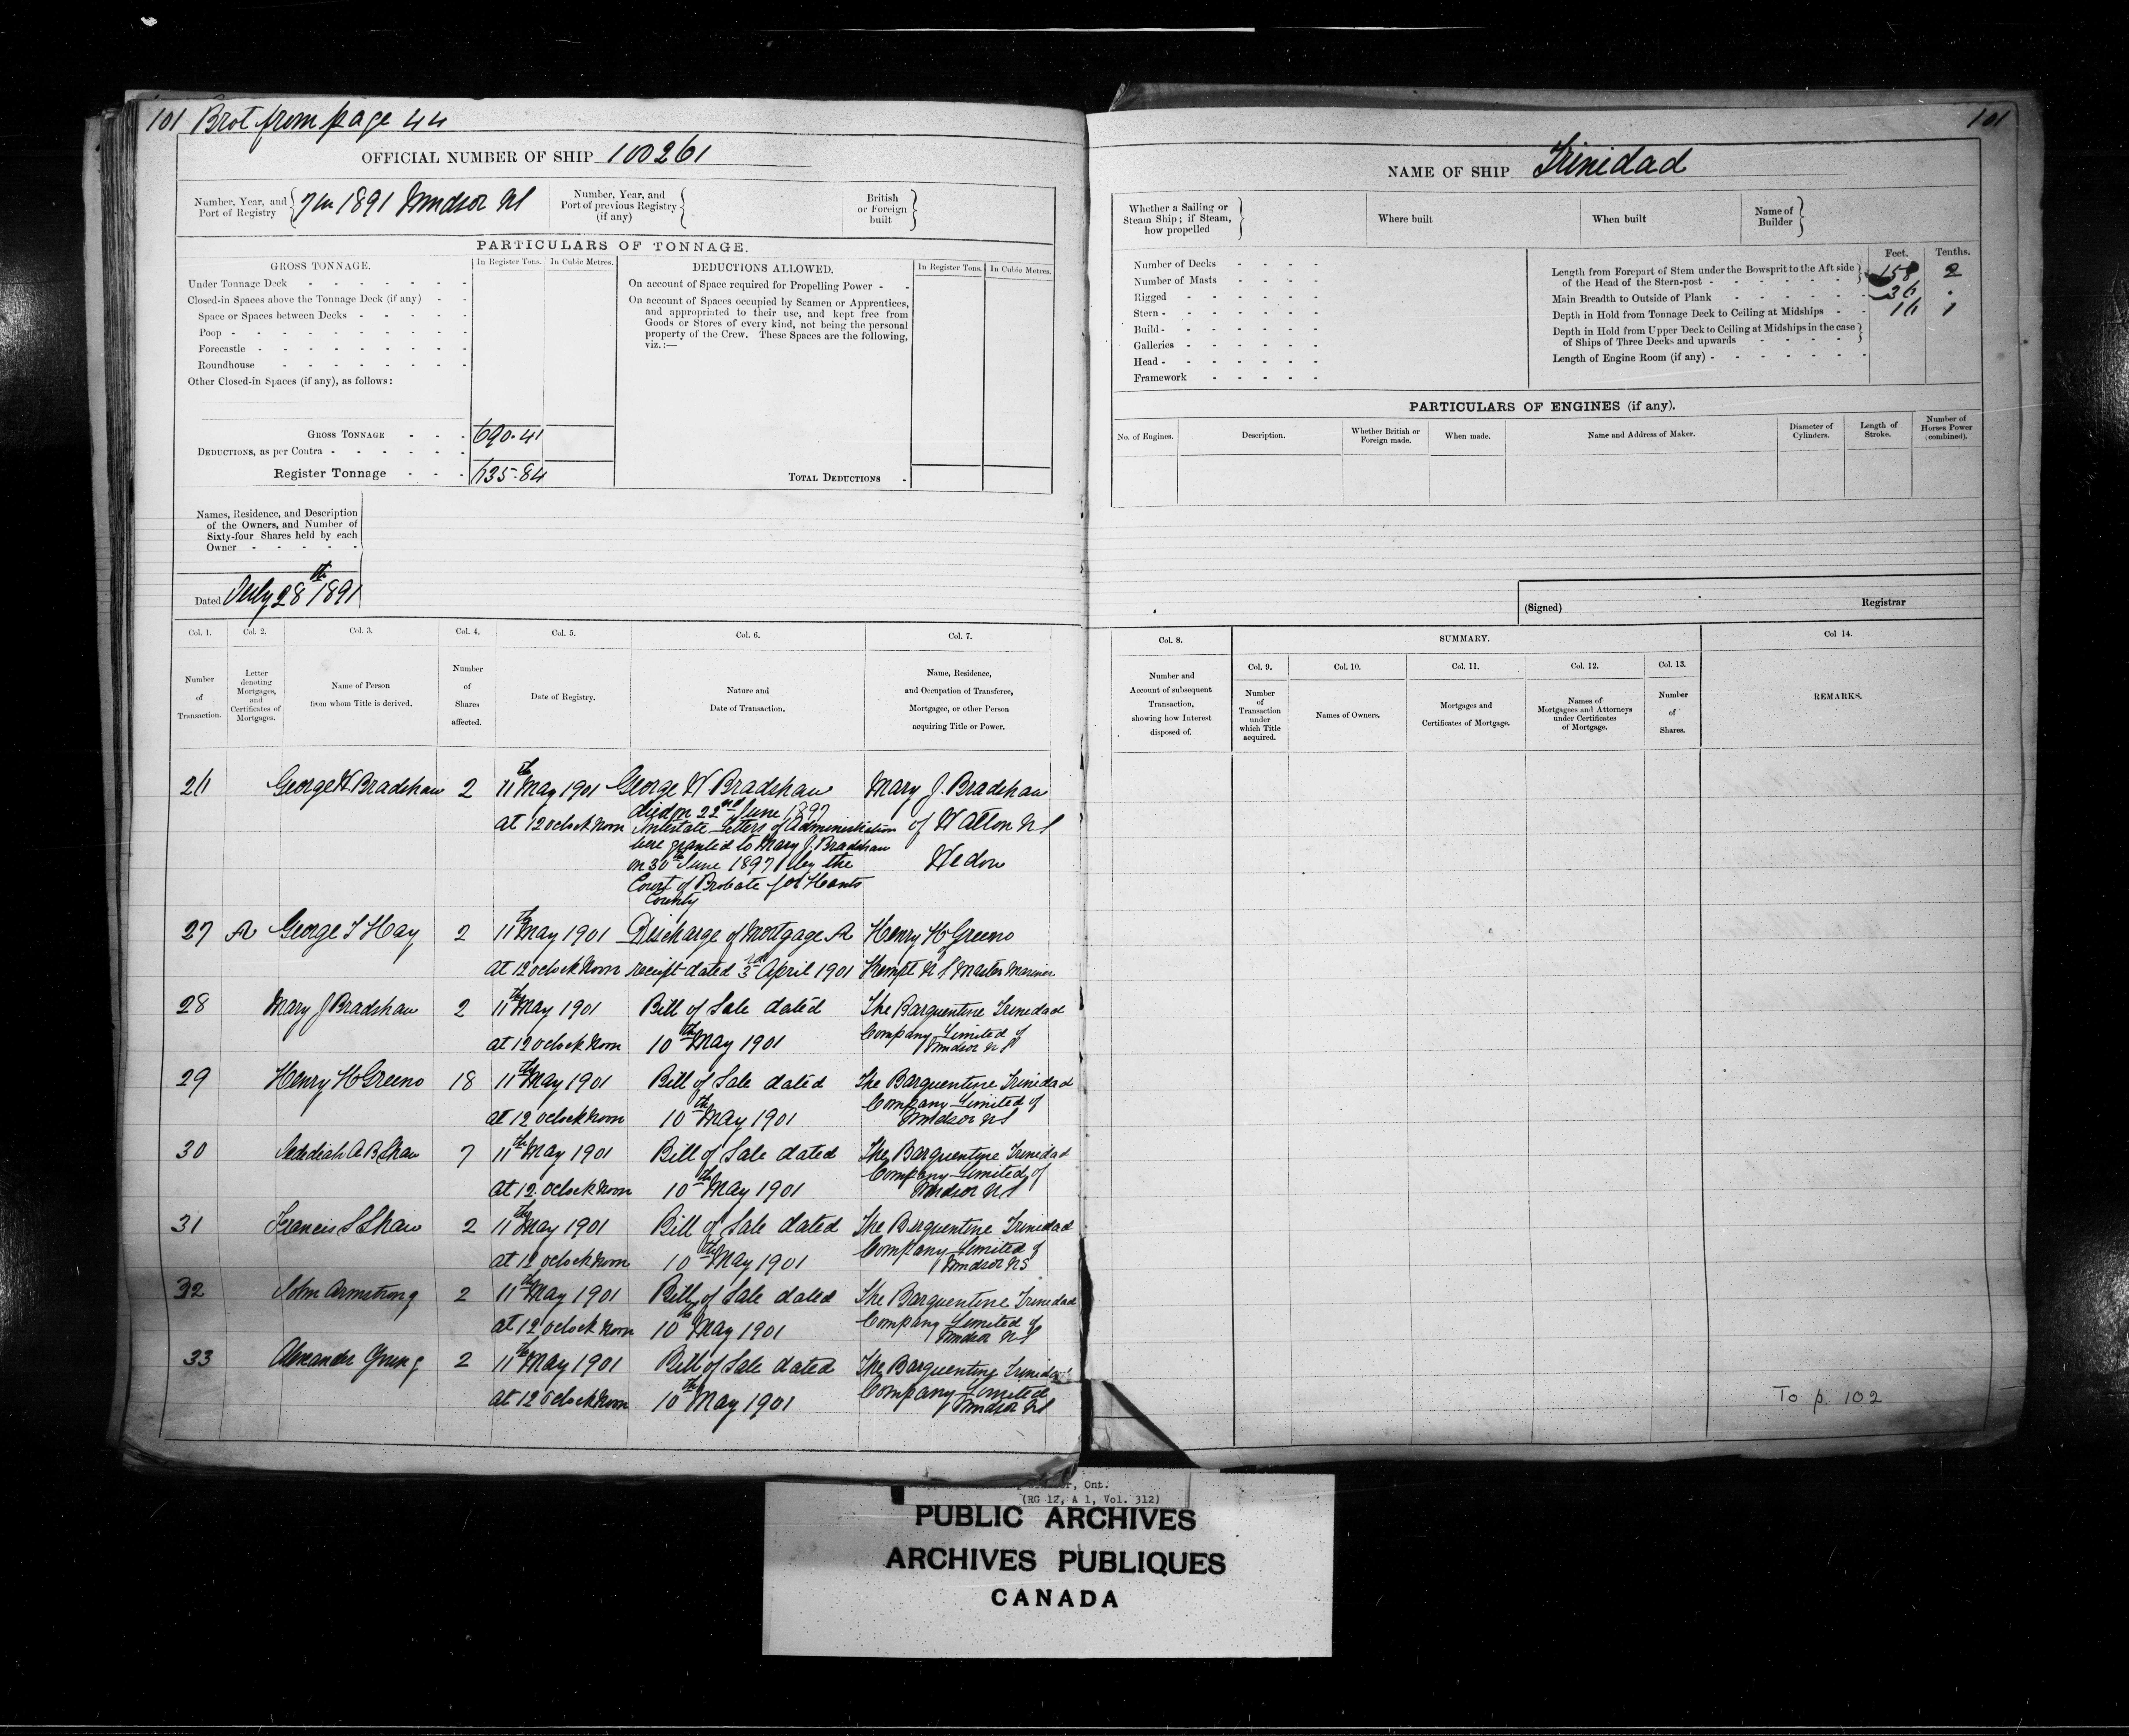 101 Brot from page 44
OFFICIAL NUMBER OF SHIP 100261
Number, Year, and Port of Registry 7 in 1891 Windsor NS
Number, Year, and Port of previous Registry (if any)
British or Foreign built
PARTICULARS OF TONNAGE.
GROSS TONNAGE.
In Register Tons. In Cubic Metres.
Under Tonnage Deck
Closed-in Spaces above the Tonnage Deck (if any)
Space or Spaces between Decks
Poop
Forecastle
Roundhouse
Other Closed-in Spaces (if any), as follows:
GROSS TONNAGE 690.41
DEDUCTIONS, as per Contra
Register Tonnage 635.84
DEDUCTIONS ALLOWED.
In Register Tons. In Cubic Metres.
On account of Space required for Propelling Power
On account of Spaces occupied by Seamen or Apprentices,
and appropriated to their use, and kept free from
Goods or Stores of every kind, not being the personal
property of the Crew. These Spaces are the following,
viz.:—
TOTAL DEDUCTIONS
Names, Residence, and Description
of the Owners, and Number of
Sixty-four Shares held by each
Owner
Dated July 28th 1891
Col. 1. Col. 2. Col. 3. Col. 4. Col. 5. Col. 6. Col. 7.
Number of Transaction.
Letter denoting Mortgages, and Certificates of Mortgages.
Name of Person from whom Title is derived.
Number of Shares affected.
Date of Registry.
Nature and Date of Transaction.
Name, Residence, and Occupation of Transferee, Mortgagee, or other Person acquiring Title or Power.
26 George W Bradshaw 2 11th May 1901 George W Bradshaw Mary J. Bradshaw
died on 22nd June 1897
at 12 oclock noon Intestate Letters of Administration of Walton NS
were granted to Mary J. Bradshaw
on 30th June 1897 by the Widow
Court of Probate for Hants
County
27 A George T Hay 2 11th May 1901 Discharge of Mortgage A Henry H Greeno
at 12 oclock noon receipt dated 3rd April 1901 Kempt N S Master Mariner
28 Mary J Bradshaw 2 11th May 1901 Bill of Sale dated The Barquentine Trinidad
at 12 oclock noon 10th May 1901 Company Limited of
Windsor N S
29 Henry H Greeno 18 11th May 1901 Bill of Sale dated The Barquentine Trinidad
Company Limited of
at 12 oclock noon 10th May 1901 Windsor NS
30 Jedediah A B Shaw 7 11th May 1901 Bill of Sale dated The Barquentine Trinidad
Company Limited of
at 12 oclock noon 10th May 1901 Windsor NS
31 Francis S Shaw 2 11th May 1901 Bill of Sale dated The Barquentine Trinidad
Company Limited of
at 12 oclock noon 10th May 1901 Windsor NS
32 John Armstrong 2 11th May 1901 Bill of Sale dated The Barquentine Trinidad
Company Limited of
at 12 oclock noon 10th May 1901 Windsor NS
33 Alexander 2 11th May 1901 Bill of Sale dated The Barquentine Trinidad
Company Limited
at 12 oclock noon 10th May 1901 Windsor NS
101
NAME OF SHIP Trinidad
Whether a Sailing or Steam Ship; if Steam, how propelled
Where built
When built
Name of Builder
Number of Decks
Number of Masts
Rigged
Stern
Build
Galleries
Head
Framework
Feet. Tenths.
Length from Forepart of Stem under the Bowsprit to the Aft side of the Head of the Stern-post 158 2
Main Breadth to Outside of Plank 36 .
Depth in Hold from Tonnage Deck to Ceiling at Midships 16 1
Depth in Hold from Upper Deck to Ceiling at Midships in the case of Ships of Three Decks and upwards
Length of Engine Room (if any)
PARTICULARS OF ENGINES (if any).
No. of Engines.
Description.
Whether British or Foreign made.
When made.
Name and Address of Maker.
Diameter of Cylinders.
Length of Stroke.
Number of Horses Power (combined).
(Signed) Registrar
Col. 8. SUMMARY. Col 14.
Col. 9. Col. 10. Col. 11. Col. 12. Col. 13.
Number and Account of subsequent Transaction, showing how Interest disposed of.
Number of Transaction under which Title acquired.
Names of Owners.
Mortgages and Certificates of Mortgage.
Names of Mortgagees and Attorneys under Certificates of Mortgage.
Number of Shares.
REMARKS.
To p. 102
Ont.
(RG 12, A 1, Vol. 312)
PUBLIC ARCHIVES
ARCHIVES PUBLIQUES
CANADA